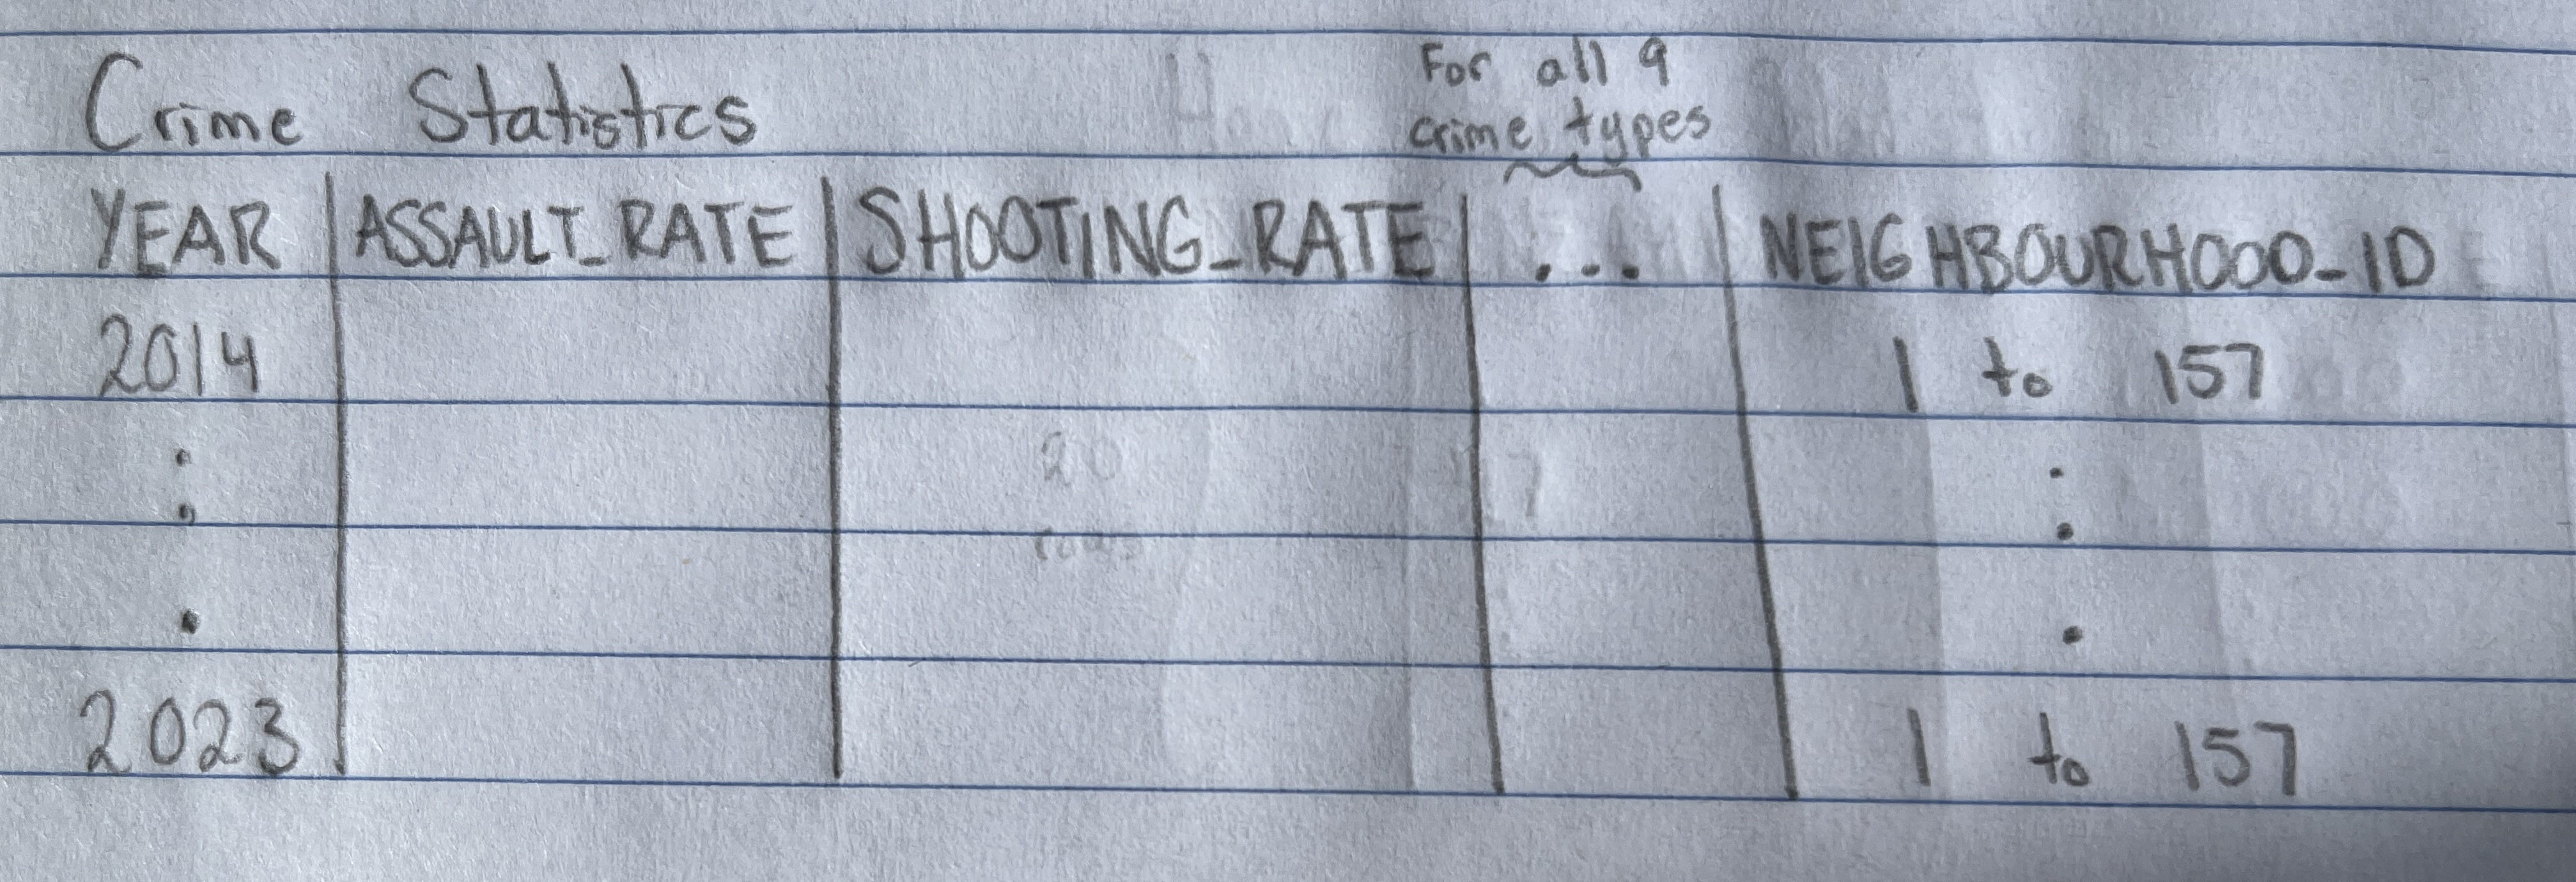 For all 9
Crime Statistics
crime types
YEAR ASSAULT_RATE SHOOTING_RATE ... NEIGHBOURHOOD_ID
2014 1 to 157
2023 1 to 157